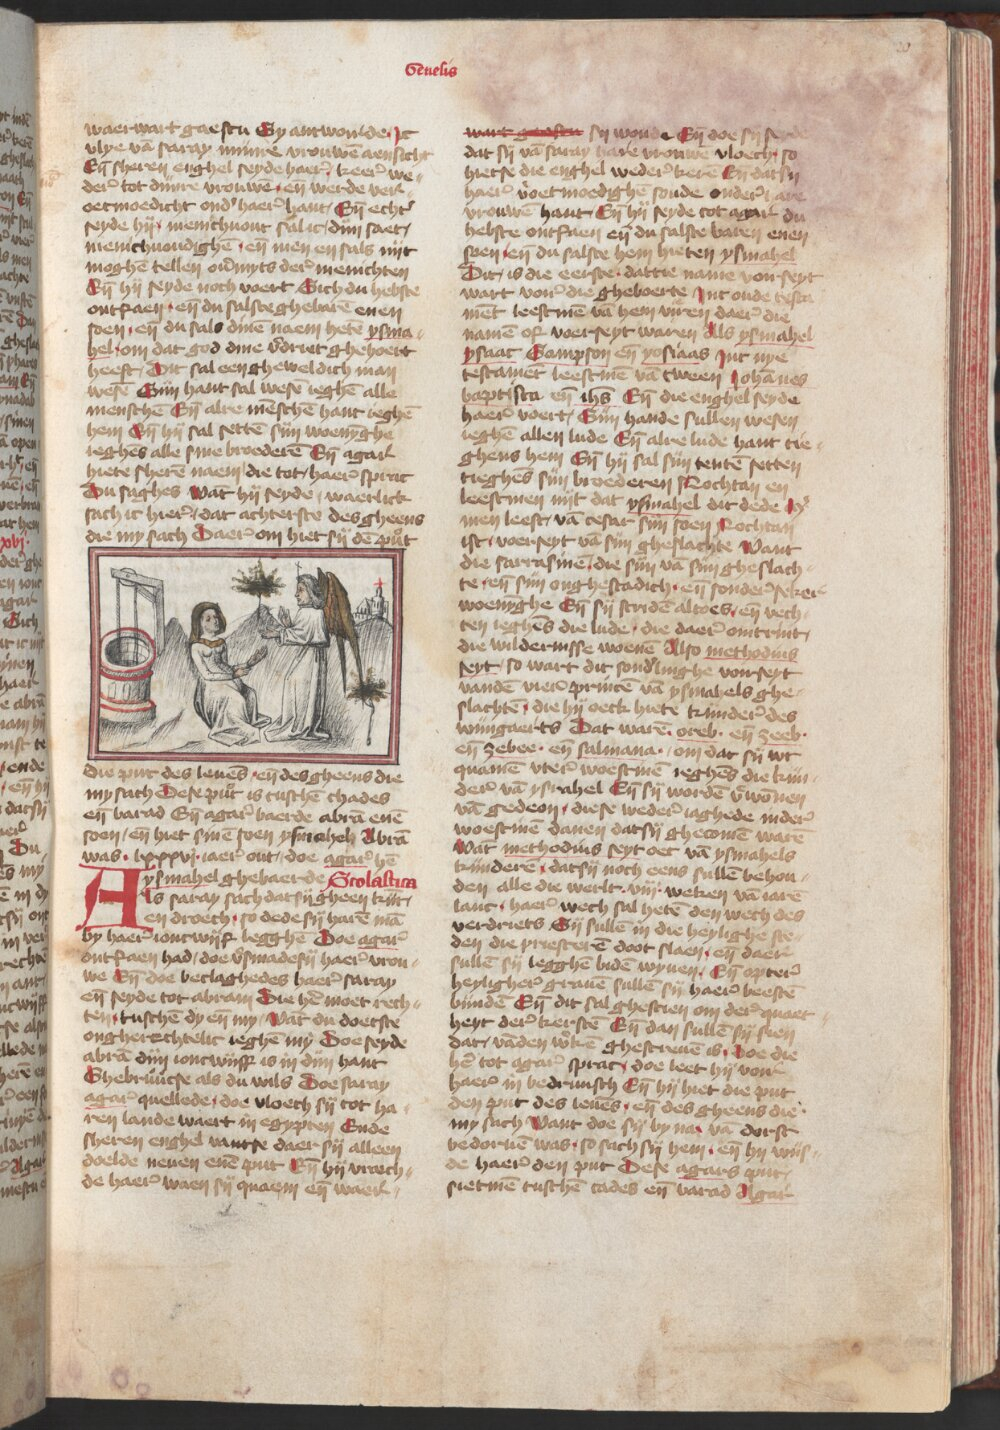 Genesis
waerwart gaestu Ey antwoirde Jc
vlye vā saray minre vrouwē aensicht
Eñ sheren enghel seyde haer keer we
der tot dijnre vrouwē eñ werde ver
oetmoedicht ond' haer hant Eñ echt'
seyde hij menichuout sal ic dijn saet
menichuoudighē eñ men en sals nijt
moghē tellen ouermyts der menichten
Eñ hij seyde noch voert Sich du hebste
ontfaen eñ du salste ghebarē enen
soen eñ du sals sine naem hetē ysma
hel om dat god dine v'driet ghehoert
heeft Dit sal een gheweldich man
wesē Sijn hant sal wesē ieghē alle
menschē Eñ alre mēschē hant ieghē
hem Eñ hij sal settē sijn woenyghe
ieghēs alle sine broederē Eñ agar
hiete sherē naem die tot haer sprac
Du saghes Wāt hij seyde waerlick
sach ic hier dat achterste des gheens
die my sach Daer om hiet sij dē put
die put des leuēs eñ des gheens die
my sach Dese put is tusschē chades
eñ barad Eñ agar baerde abrā enē
soen eñ hiet sinē soen ysmahel Abrā
was lxxxvj iaer out doe agar hē
ysmahel ghebaerde Scolastica
Als saray sach dat sij gheen kint
en droech so dede sij harē mā
by haer ioncwijf legghē Doe agar
ontfaen had doe v'smadesij haer vrou
we Eñ doe beclaghedes haer saray
eñ seyde tot abram Die hē moet rech
ten tusschē dy eñ my Wāt du doetste
ongherechtelic ieghē my Doe seyde
abrā dijn ioncwijf is in dijn hant
Ghebruucse als du wils Doe saray
agar quellede doe vloech sij tot ha
ren lande waert in egypten Ende
sheren enghel vantse daer sij alleen
doelde neuen enē put Eñ hij vraech
de haer waen sij quaem eñ waer
wart gaestu sij woude Eñ doe sij seyde
dat sij vā saray hare vrouwe vloech so
hietse die enghel weder kerē Eñ dat sij
haer v'oetmoedighē soude onder hare
vrouwē hant Eñ hij seyde tot agar du
hebste ontfaen eñ du salste baren enen
soen eñ du salste hem hieten ysmahel
Dit is die eerste dattie name voirseyt
wart voir die gheboerte Jnt oude testa
mēt leestmen vā hem vieren daer die
namē of voerseyt waren Als ysmahel
ysaac Sampson eñ yosiaas Jnt nye
testamēt leestmē vā tween Johānes
baptista eñ ihs Eñ die enghel seyde
haer voert Sijn hande sullen wesen
ieghē allen lude Eñ alre lude hant tie
ghens hem Eñ hij sal sijn tentē setten
tieghēs sijn broederen Nochtan en
leestmen nijt dat ysmahel dit dede
men leest vā cesar sijn soen Nochtan
ist voerseyt vā sijn gheslachte Want
die sarrasinē die sijn vā sijn gheslach
te eñ sijn onghestadich eñ sonder seker
woenyghe Eñ sij stridē altoes eñ vech
ten ieghēs die lude die daer omtrint
die wildernisse woenē Also methodius
seyt so wart dit sond'linghe voirseyt
vandē vier princē vā ysmahels ghe
slachtē die hij oeck hietē kinder des
wijngaerts Dat warē oreb eñ zeeb
eñ zebee eñ salmana om dat sij wt
quamē vter woestinē ieghēs die kin
der vā ysrahel Eñ sij wordē v'wōnen
vā gedeon diese weder iaghede in der
woestinē danen dat sij ghecomē warē
Wāt methodius seyt oec vā ysmahels
kinderē dat sij noch eens sullē behou
den alle die werlt viij weken vā iarē
lanc haer wech sal hetē den wech des
verdriets Sij sullē in die heylighe ste
den die priesterē doot slaen eñ daer
sullē sij legghē bidē wyuen Eñ opter
heyligher grauē sullē sij haer beestē
bindē Eñ dit sal ghescien om der quaet
heyt der kerstē Eñ dan sullē sij sien
dat vāden ghescreuē is Doe die
hē tot agar sprac doe leet hij voir
haer in bedruusch Eñ hij hiet die put
den put des leuēs eñ des gheens die
my sach Want doe sij by na vā dorst
bedoruē was so sach sij hem eñ hij wijs
de haer den put Dese agars put
sietmē tusschē cades eñ barad Agar